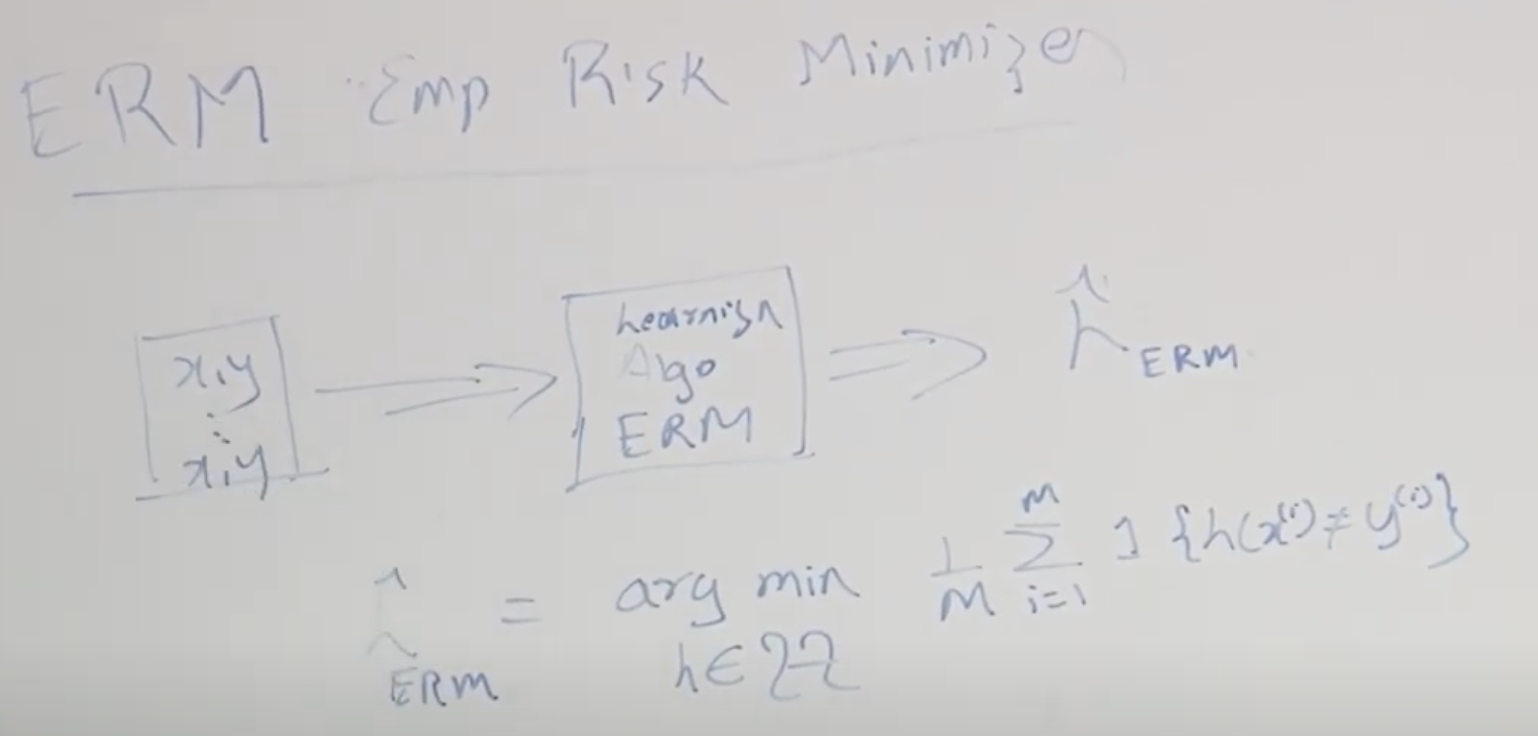 ERM Emp Risk Minimizer
x,y
⋮
x,y
Learning
Algo
ERM
ĥ ERM
ĥ ERM = arg min h∈ℋ 1/m ∑ i=1 m 1 {h(x⁽ⁱ⁾) ≠ y⁽ⁱ⁾}